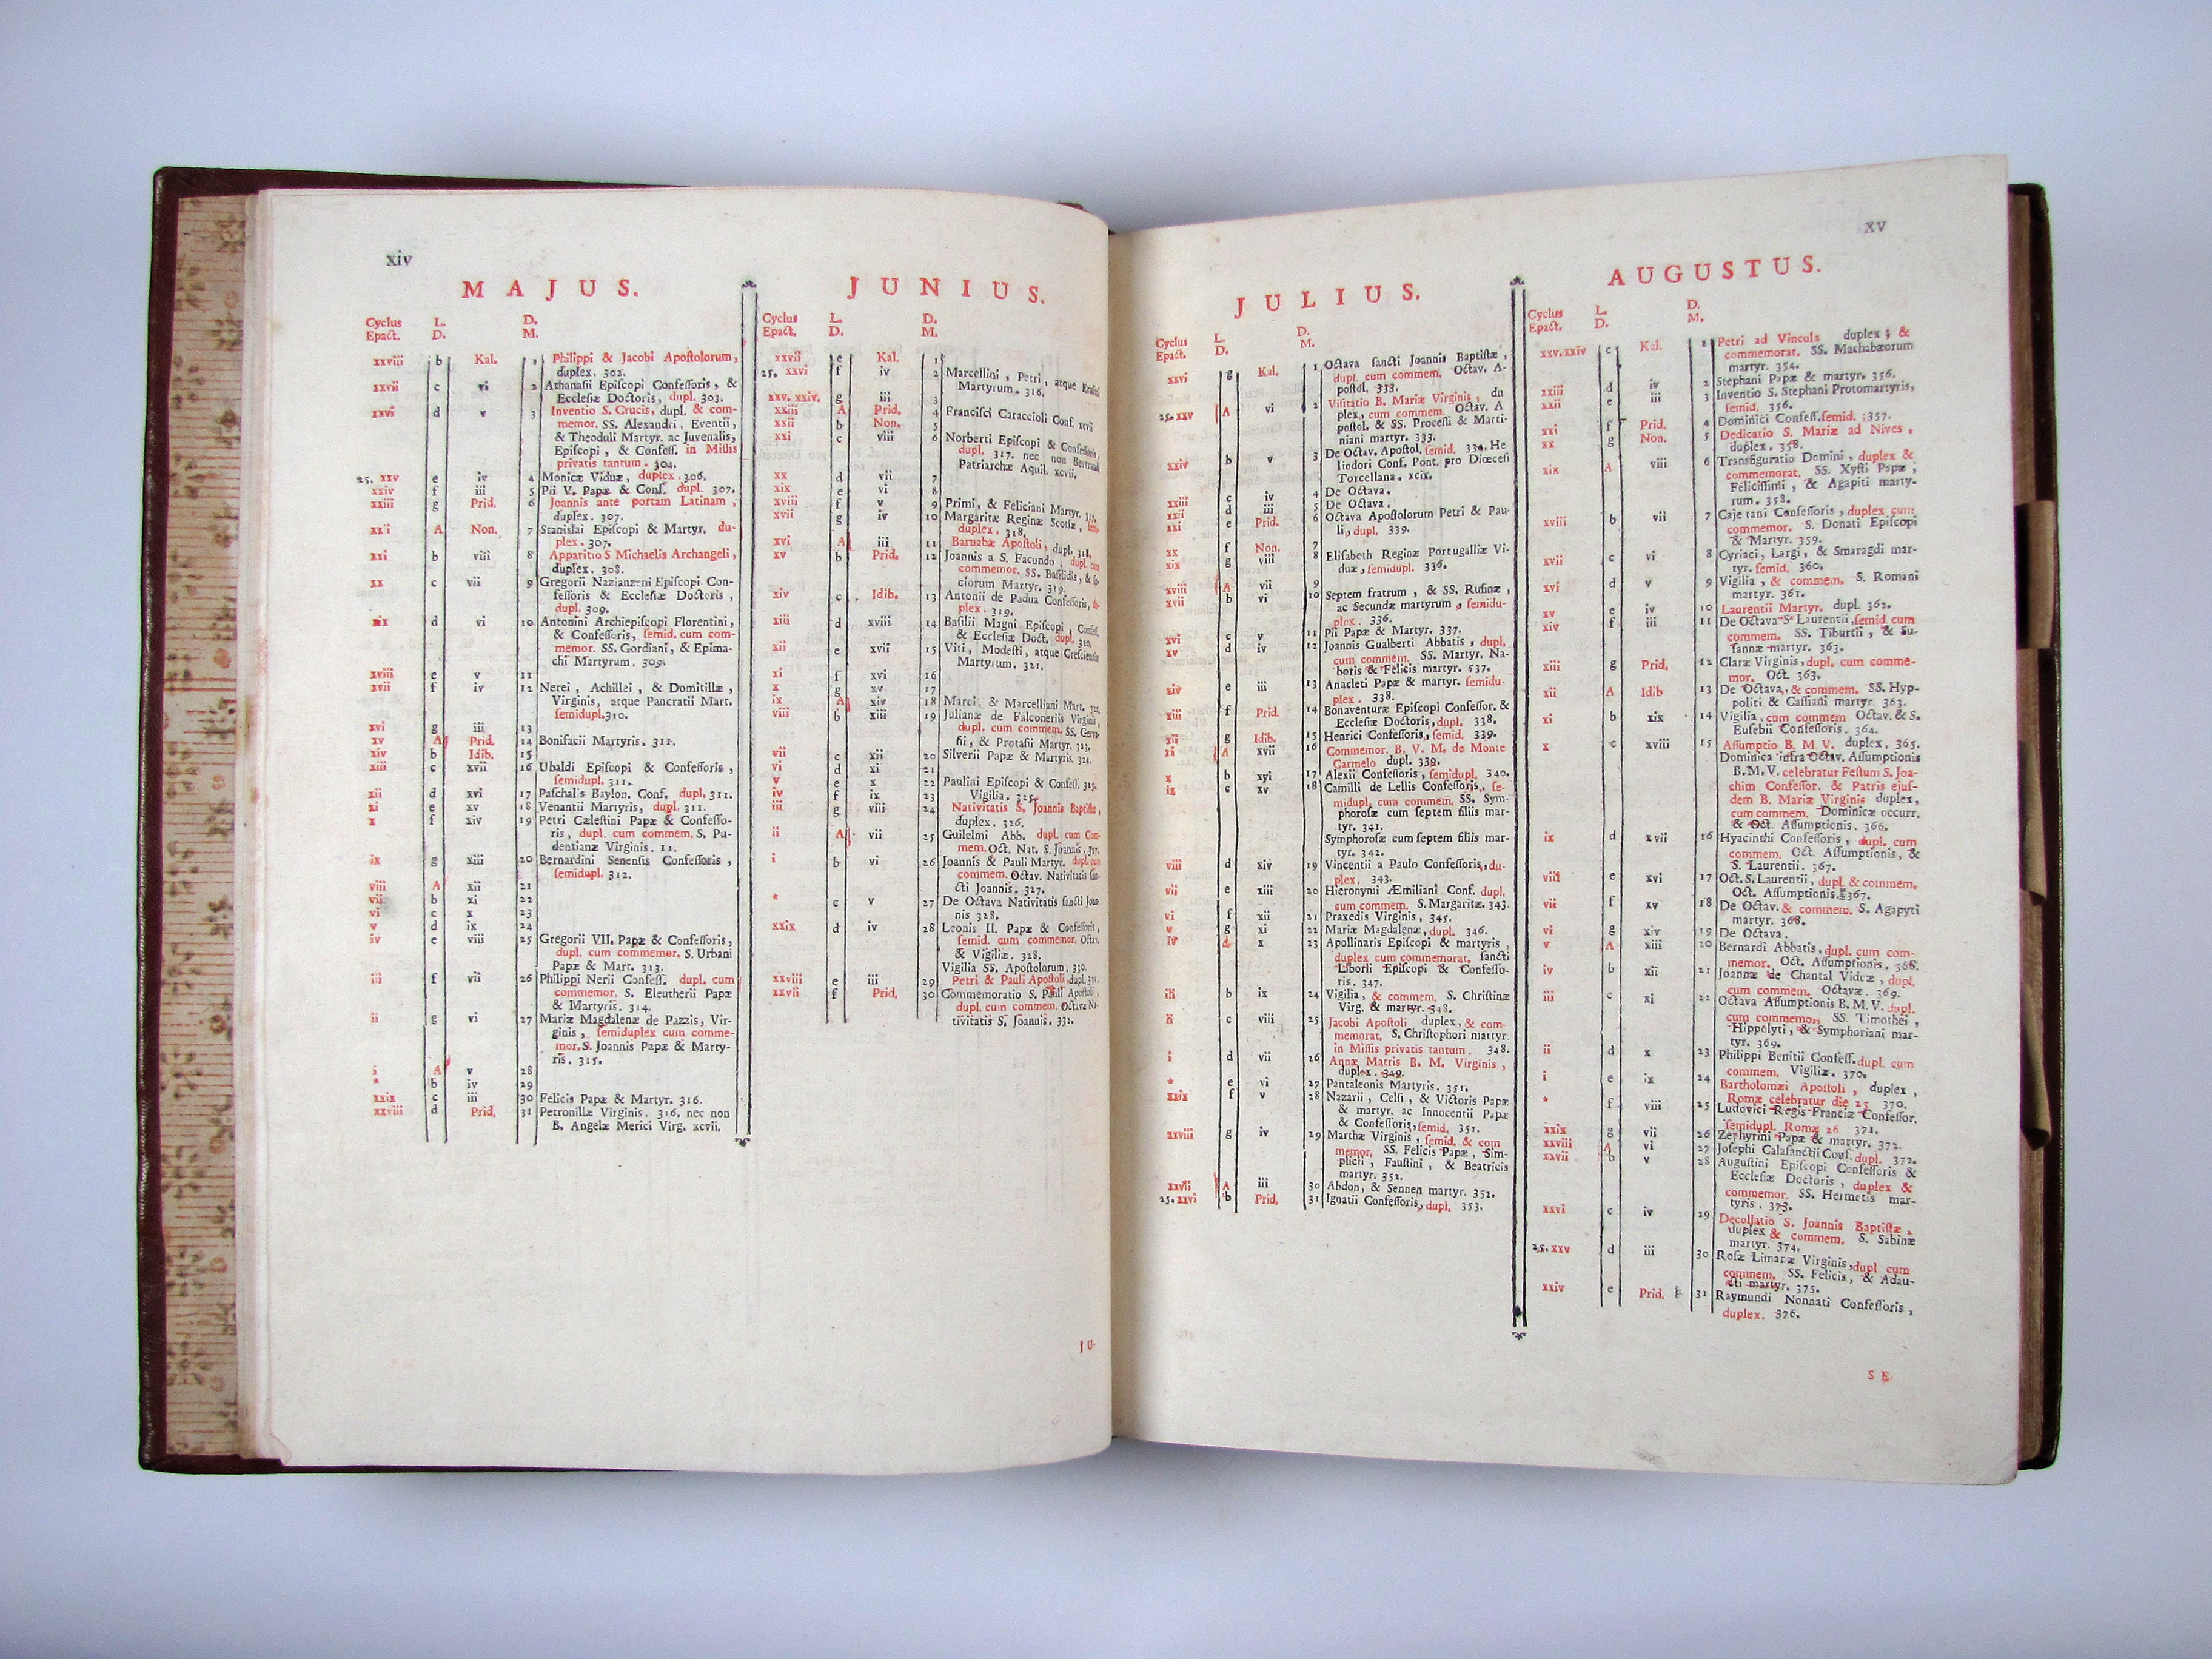 xiv
MAJUS.
Cyclus L. D.
Epact. D. M.
xxviii b Kal. 1 Philippi & Jacobi Apoſtolorum,
duplex. 302.
xxvii c vi 2 Athanaſii Epiſcopi Confeſſoris, &
Eccleſiæ Doctoris, dupl. 303.
xxvi d v 3 Inventio S. Crucis, dupl. & com-
memor. SS. Alexandri, Eventii,
& Theoduli Martyr. ac Juvenalis,
Epiſcopi, & Confeſſ. in Miſſis
privatis tantum. 304.
25. xxv e iv 4 Monicæ Viduæ, duplex. 306.
xxiv f iii 5 Pii V. Papæ & Conf. dupl. 307.
xxiii g Prid. 6 Joannis ante portam Latinam,
duplex. 307.
xxii A Non. 7 Stanislai Epiſcopi & Martyr. du-
plex. 307.
xxi b viii 8 Apparitio S Michaelis Archangeli,
duplex. 308.
xx c vii 9 Gregorii Nazianzeni Epiſcopi Con-
feſſoris & Eccleſiæ Doctoris,
dupl. 309.
xix d vi 10 Antonini Archiepiſcopi Florentini,
& Confeſſoris, ſemid. cum com-
memor. SS. Gordiani, & Epima-
chi Martyrum. 309.
xviii e v 11
xvii f iv 12 Nerei, Achillei, & Domitillæ,
Virginis, atque Pancratii Mart.
ſemidupl. 310.
xvi g iii 13
xv A Prid. 14 Bonifacii Martyris. 311.
xiv b Idib. 15
xiii c xvii 16 Ubaldi Epiſcopi & Confeſſoris,
ſemidupl. 311.
xii d xvi 17 Paſchalis Baylon. Conf. dupl. 311.
xi e xv 18 Venantii Martyris, dupl. 311.
x f xiv 19 Petri Cæleſtini Papæ & Confeſſo-
ris, dupl. cum commem. S. Pu-
dentianæ Virginis. 11.
ix g xiii 20 Bernardini Senenſis Confeſſoris,
ſemidupl. 312.
viii A xii 21
vii b xi 22
vi c x 23
v d ix 24
iv e viii 25 Gregorii VII. Papæ & Confeſſoris,
dupl. cum commemor. S. Urbani
Papæ & Mart. 313.
iii f vii 26 Philippi Nerii Confeſſ. dupl. cum
commemor. S. Eleutherii Papæ
& Martyris. 314.
ii g vi 27 Mariæ Magdalenæ de Pazzis, Vir-
ginis, ſemiduplex cum comme-
mor. S. Joannis Papæ & Marty-
ris. 315.
i A v 28
* b iv 29
xxix c iii 30 Felicis Papæ & Martyr. 316.
xxviii d Prid. 31 Petronillæ Virginis. 316. nec non
B. Angelæ Merici Virg. xcvii.
JUNIUS.
Cyclus L. D.
Epact. D. M.
xxvii e Kal. 1
25. xxvi f iv 2 Marcellini, Petri, atque Eraſmi
Martyrum. 316.
xxv. xxiv. g iii 3
xxiii A Prid. 4 Franciſci Caraccioli Conf. xcvii
xxii b Non. 5
xxi c viii 6 Norberti Epiſcopi & Confeſſoris,
dupl. 317. nec non Bertrandi
Patriarchæ Aquil. xcvii.
xx d vii 7
xix e vi 8
xviii f v 9 Primi, & Feliciani Martyr.
xvii g iv 10 Margaritæ Reginæ Scotiæ,
duplex. 318.
xvi A iii 11 Barnabæ Apoſtoli, dupl. 318.
xv b Prid. 12 Joannis a S. Facundo, dupl. cum
commemor. SS. Baſilidis, & ſo-
ciorum Martyr. 319.
xiv c Idib. 13 Antonii de Padua Confeſſoris, du-
plex. 319.
xiii d xviii 14 Baſilii Magni Epiſcopi, Confeſſ.
& Eccleſiæ Doct. dupl. 320.
xii e xvii 15 Viti, Modeſti, atque Creſcentiæ
Martyrum. 321.
xi f xvi 16
x g xv 17
ix A xiv 18 Marci, & Marcelliani Mart. 322.
viii b xiii 19 Julianæ de Falconeriis Virginis,
dupl. cum commem. SS. Gerva-
ſii, & Protaſii Martyr. 323.
vii c xii 20 Silverii Papæ & Martyris. 324.
vi d xi 21
v e x 22 Paulini Epiſcopi & Confeſſ. 325.
iv f ix 23 Vigilia. 325.
iii g viii 24 Nativitatis S. Joannis Baptiſtæ,
duplex. 326.
ii A vii 25 Guilelmi Abb. dupl. cum Com-
mem. Oct. Nat. S. Joannis. 327.
i b vi 26 Joannis & Pauli Martyr. dupl. cum
commem. Octav. Nativitatis ſan-
cti Joannis. 327.
* c v 27 De Octava Nativitatis ſancti Joan-
nis 328.
xxix d iv 28 Leonis II. Papæ & Confeſſoris,
ſemid. cum commemor. Octav.
& Vigiliæ. 328.
Vigilia SS. Apoſtolorum. 330.
xxviii e iii 29 Petri & Pauli Apoſtoli, dupl. 331.
xxvii f Prid. 30 Commemoratio S. Pauli Apoſtoli,
dupl. cum commem. Octava Na-
tivitatis S. Joannis. 332.
JU-
xv
JULIUS.
Cyclus L. D.
Epact. D. M.
xxvi g Kal. 1 Octava ſancti Joannis Baptiſtæ,
dupl. cum commem. Octav. A-
poſtol. 333.
25. xxv A vi 2 Viſitatio B. Mariæ Virginis, du
plex, cum commem. Octav. A
poſtol. & SS. Proceſſi & Marti-
niani martyr. 333.
xxiv b v 3 De Octava Apoſtol. ſemid. 334. He
liodori Conf. Pont. pro Diœceſi
Torcellana. xcix.
xxiii c iv 4 De Octava.
xxii d iii 5 De Octava.
xxi e Prid. 6 Octava Apoſtolorum Petri & Pau-
li, dupl. 339.
xx f Non. 7
xix g viii 8 Eliſabeth Reginæ Portugalliæ Vi-
duæ, ſemidupl. 336.
xviii A vii 9
xvii b vi 10 Septem fratrum, & SS. Rufinæ,
ac Secundæ martyrum, ſemidu-
plex. 336.
xvi c v 11 Pii Papæ & Martyr. 337.
xv d iv 12 Joannis Gualberti Abbatis, dupl.
cum commem. SS. Martyr. Na-
boris & Felicis martyr. 537.
xiv e iii 13 Anacleti Papæ & martyr. ſemidu-
plex. 338.
xiii f Prid. 14 Bonaventuræ Epiſcopi Confeſſor. &
Eccleſiæ Doctoris, dupl. 338.
xii g Idib. 15 Henrici Confeſſoris, ſemid. 339.
xi A xvii 16 Commemor. B. V. M. de Monte
Carmelo dupl. 339.
x b xvi 17 Alexii Confeſſoris, ſemidupl. 340.
ix c xv 18 Camilli de Lellis Confeſſoris, ſe-
midupl. cum commem. SS. Sym-
phoroſæ cum ſeptem filiis mar-
tyr. 341.
Symphoroſæ cum ſeptem filiis mar-
tyr. 342.
viii d xiv 19 Vincentii a Paulo Confeſſoris, du-
plex. 343.
vii e xiii 20 Hieronymi Æmiliani Conf. dupl.
cum commem. S. Margaritæ. 343.
vi f xii 21 Praxedis Virginis, 345.
v g xi 22 Mariæ Magdalenæ, dupl. 346.
iv d x 23 Apollinaris Epiſcopi & martyris,
duplex cum commemorat. ſancti
Liborii Epiſcopi & Confeſſo-
ris. 347.
iii b ix 24 Vigilia, & commem. S. Chriſtinæ
Virg. & martyr. 348.
ii c viii 25 Jacobi Apoſtoli duplex, & com-
memorat. S. Chriſtophori martyr.
in Miſſis privatis tantum. 348.
i d vii 26 Annæ Matris B. M. Virginis,
duplex. 349.
* e vi 27 Pantaleonis Martyris. 351.
xxix f v 28 Nazarii, Celſi, & Victoris Papæ
& martyr. ac Innocentii Papæ
& Confeſſoris, ſemid. 351.
xxviii g iv 29 Marthæ Virginis, ſemid. & com
memor. SS. Felicis Papæ, Sim-
plicii, Fauſtini, & Beatricis
martyr. 352.
xxvii A iii 30 Abdon, & Sennen martyr. 352.
25. xxvi b Prid. 31 Ignatii Confeſſoris, dupl. 353.
AUGUSTUS.
Cyclus L. D.
Epact. D. M.
xxv. xxiv c Kal. 1 Petri ad Vincula duplex; &
commemorat. SS. Machabæorum
martyr. 354.
xxiii d iv 2 Stephani Papæ & martyr. 356.
xxii e iii 3 Inventio S. Stephani Protomartyris,
ſemid. 356.
xxi f Prid. 4 Dominici Confeſſ. ſemid. 357.
xx g Non. 5 Dedicatio S. Mariæ ad Nives,
duplex. 358.
xix A viii 6 Transfiguratio Domini, duplex &
commemorat. SS. Xyſti Papæ,
Feliciſſimi, & Agapiti marty-
rum. 358.
xviii b vii 7 Cajetani Confeſſoris, duplex cum
commemor. S. Donati Epiſcopi
& Martyr. 359.
xvii c vi 8 Cyriaci, Largi, & Smaragdi mar-
tyr. ſemid. 360.
xvi d v 9 Vigilia, & commem. S. Romani
martyr. 361.
xv e iv 10 Laurentii Martyr. dupl. 362.
xiv f iii 11 De Octava S. Laurentii, ſemid. cum
commem. SS. Tiburtii, & Su-
ſannæ martyr. 363.
xiii g Prid. 12 Claræ Virginis, dupl. cum comme-
mor. Oct. 363.
xii A Idib 13 De Octava, & commem. SS. Hyp-
politi & Caſſiani martyr. 363.
xi b xix 14 Vigilia, cum commem Octav. & S.
Euſebii Confeſſoris. 364.
x c xviii 15 Aſſumptio B. M. V. duplex, 365.
Dominica infra Octav. Aſſumptionis
B.M.V. celebratur Feſtum S. Joa-
chim Confeſſor. & Patris ejuſ-
dem B. Mariæ Virginis duplex,
cum commem. Dominicæ occurr.
& Oct. Aſſumptionis. 366.
ix d xvii 16 Hyacinthi Confeſſoris, dupl. cum
commem. Oct. Aſſumptionis, &
S. Laurentii. 367.
viii e xvi 17 Oct. S. Laurentii, dupl. & commem.
Oct. Aſſumptionis. 367.
vii f xv 18 De Octav. & commem. S. Agapyti
martyr. 368.
vi g xiv 19 De Octava.
v A xiii 20 Bernardi Abbatis, dupl. cum com-
memor. Oct. Aſſumptionis. 368.
iv b xii 21 Joannæ de Chantal Viduæ, dupl.
cum commem. Octavæ. 369.
iii c xi 22 Octava Aſſumptionis B. M. V. dupl.
cum commemor. SS. Timothei,
Hippolyti, & Symphoriani mar-
tyr. 369.
ii d x 23 Philippi Benitii Confeſſ. dupl. cum
commem. Vigiliæ. 370.
i e ix 24 Bartholomæi Apoſtoli, duplex,
Romæ celebratur die 25 370.
* f viii 25 Ludovici Regis Franciæ Confeſſor.
ſemidupl. Romæ 26 371.
xxix g vii 26 Zephyrini Papæ & martyr. 372.
xxviii A vi 27 Joſephi Calaſanctii Conf. dupl. 372.
xxvii b v 28 Auguſtini Epiſcopi Confeſſoris &
Eccleſiæ Doctoris, duplex &
commemor. SS. Hermetis mar-
tyris. 373.
xxvi c iv 29 Decollatio S. Joannis Baptiſtæ.
duplex & commem. S. Sabinæ
martyr. 374.
25. xxv d iii 30 Roſæ Limanæ Virginis, dupl cum
commem. SS. Felicis, & Adau-
cti martyr. 375.
xxiv e Prid. g 31 Raymundi Nonnati Confeſſoris,
duplex. 376.
SE.